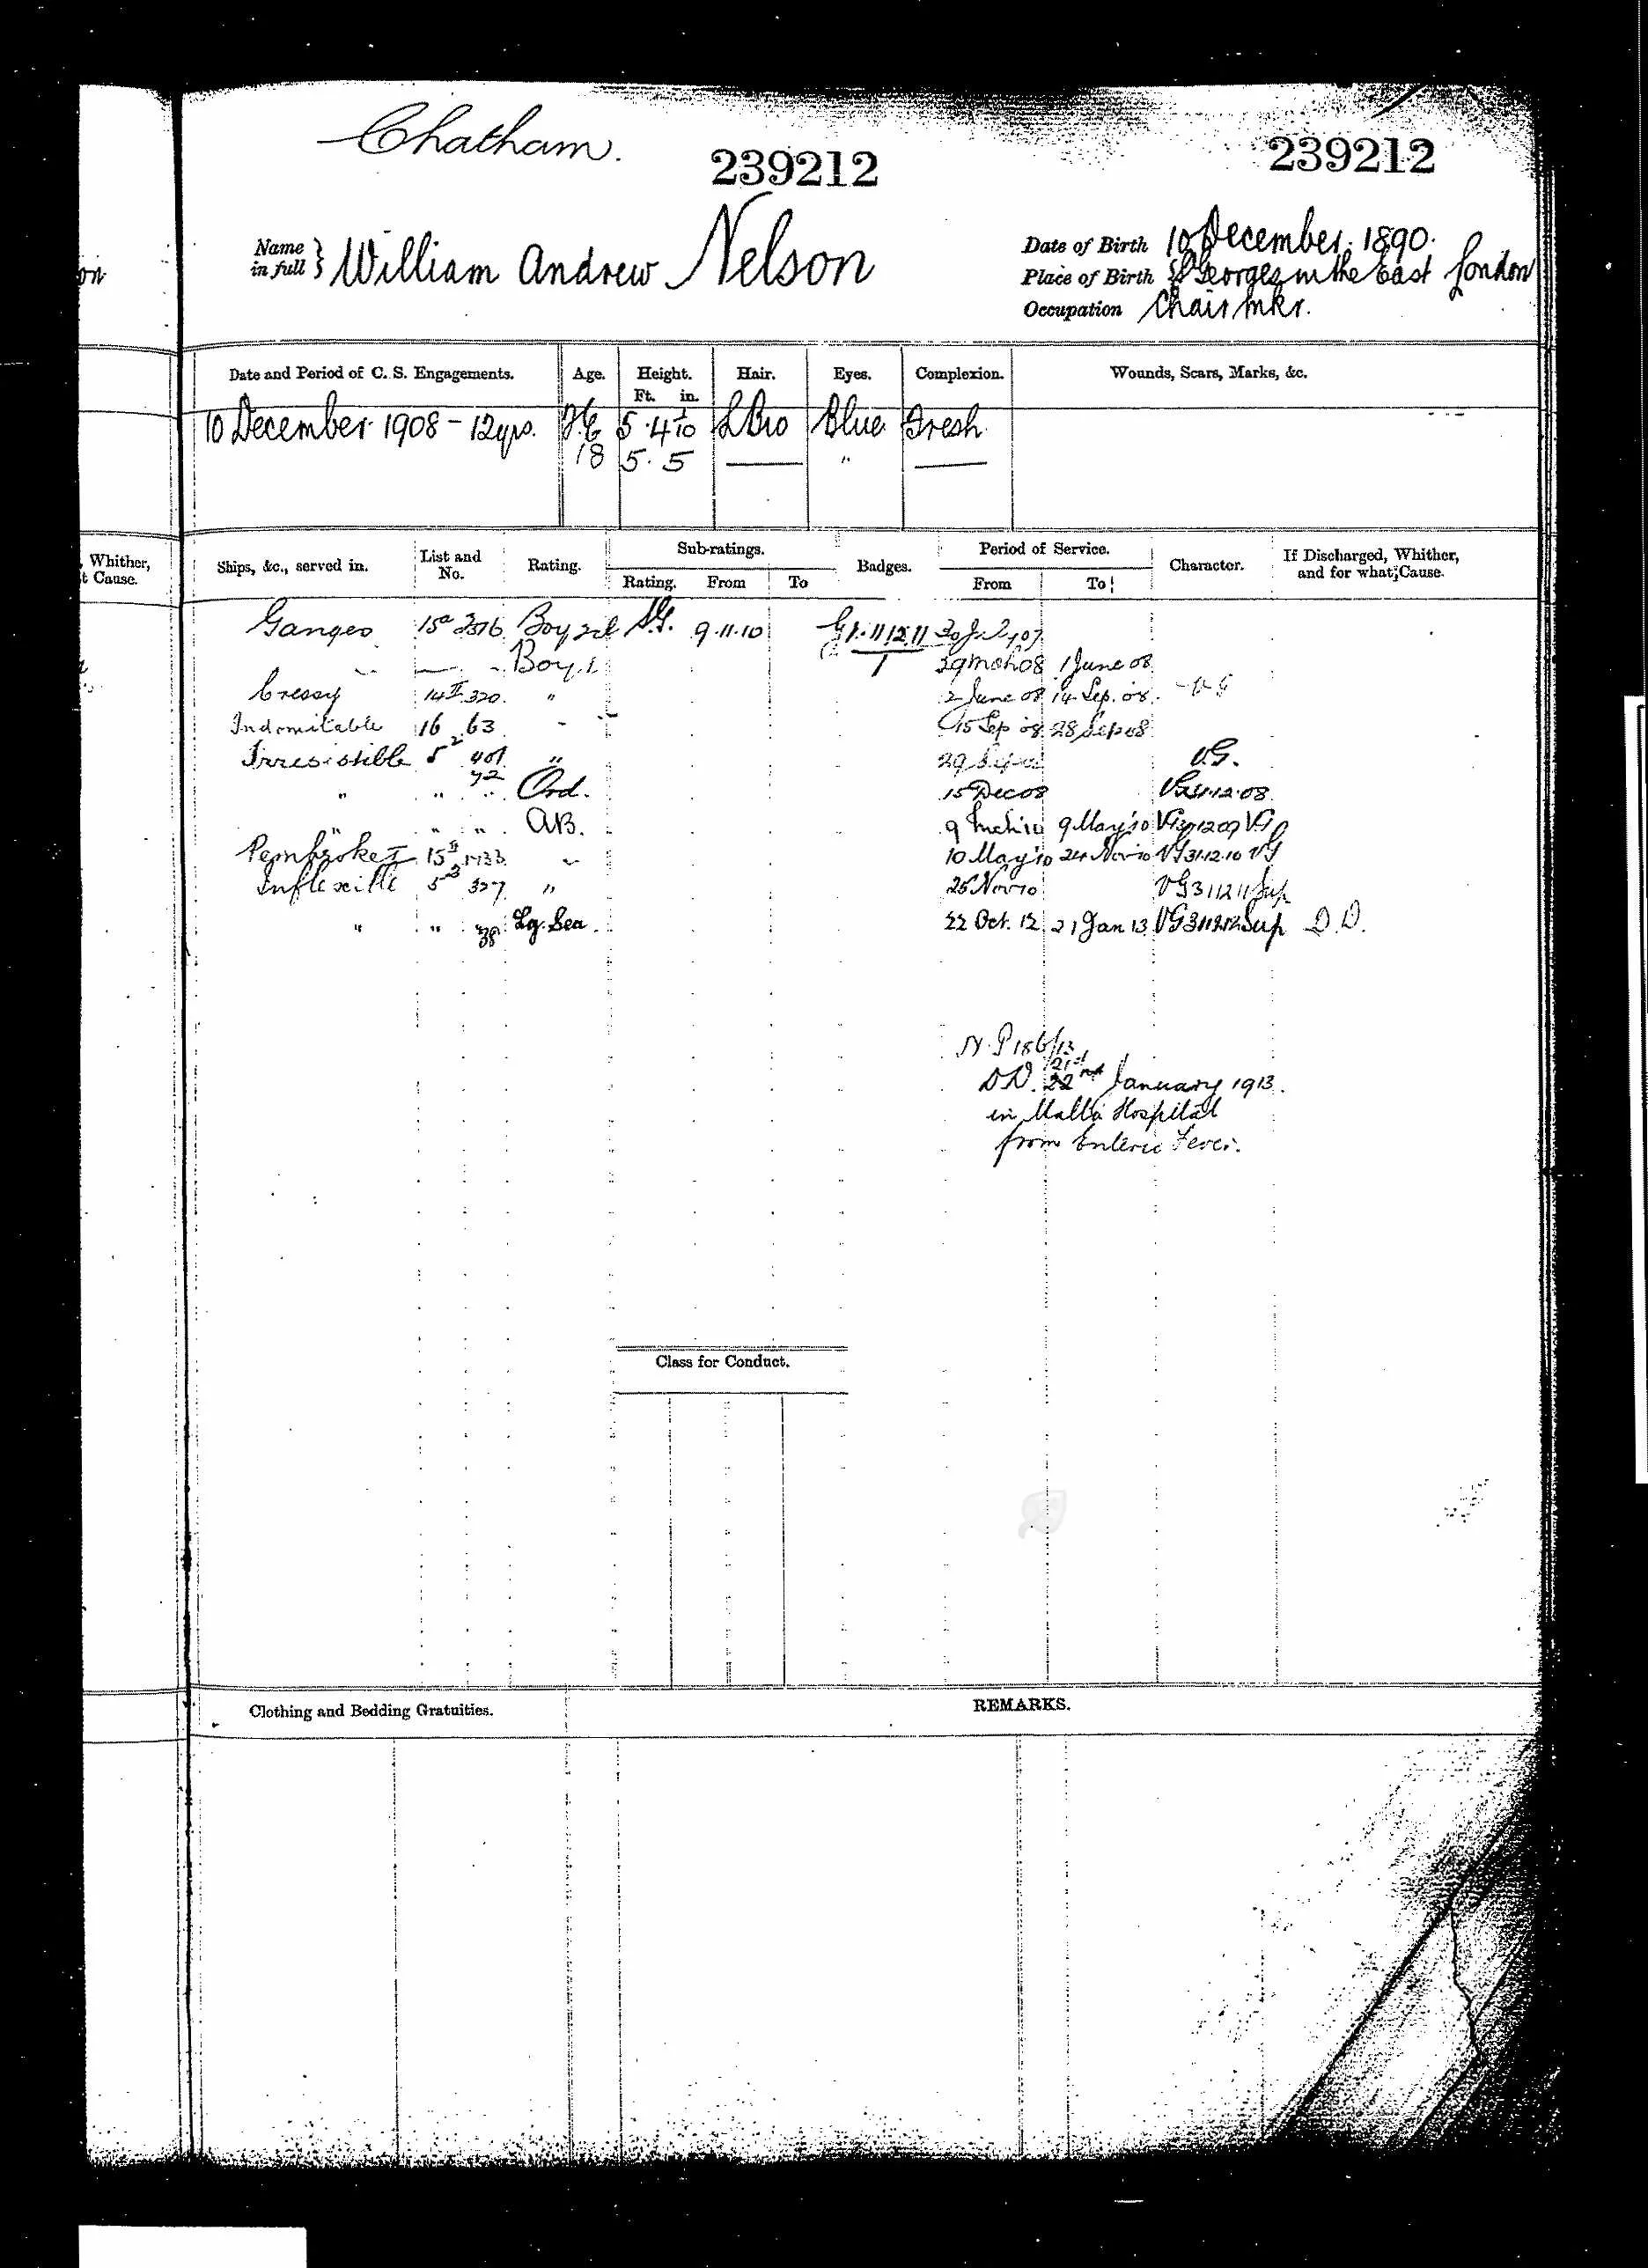 Chatham.
239212
239212
Name in full } William Andrew Nelson
Date of Birth 10 December 1890.
Place of Birth St Georges in the East London
Occupation Chair Mkr.
Date and Period of C. S. Engagements. Age. Height. Hair. Eyes. Complexion. Wounds, Scars, Marks, &c.
Ft. in.
10 December 1908 - 12 yrs. 5. 4 L Bro Blue Fresh
18 5. 5 — " —
on
Whither,
t Cause.
Ships, &c., served in. List and No. Rating. Sub-ratings. Badges. Period of Service. Character. If Discharged, Whither, and for what Cause.
Rating. From To From To
Ganges 15a Boy 2cl S.G. 9.11.10
Boy 1 29 Mch 08 1 June 08
Cressy 14 II 320 " 2 June 08 14 Sep. 08 V G
Indomitable 16 63 15 Sep 08 28 Sep 08
Irresistible 5 2 401 " V.G.
" " 42 Ord. 15 Dec 08 VG 31.12.08
" " " AB. 9 Mch 10 9 May 10 VG 31 12 09 VG
Pembroke I 15 II 1433 " 10 May 10 24 Nov 10 VG 31.12.10 VG
Inflexible 5 3 327 " 25 Nov 10 VG 31 12 11 Sup
" " Lg. Sea. 22 Oct. 12 21 Jan 13 VG 31 12 12 Sup D.D.
N.P 186/13
21st
DD. 22nd January 1913.
in Malta Hospital
from Enteric Fever.
Class for Conduct.
Clothing and Bedding Gratuities. REMARKS.